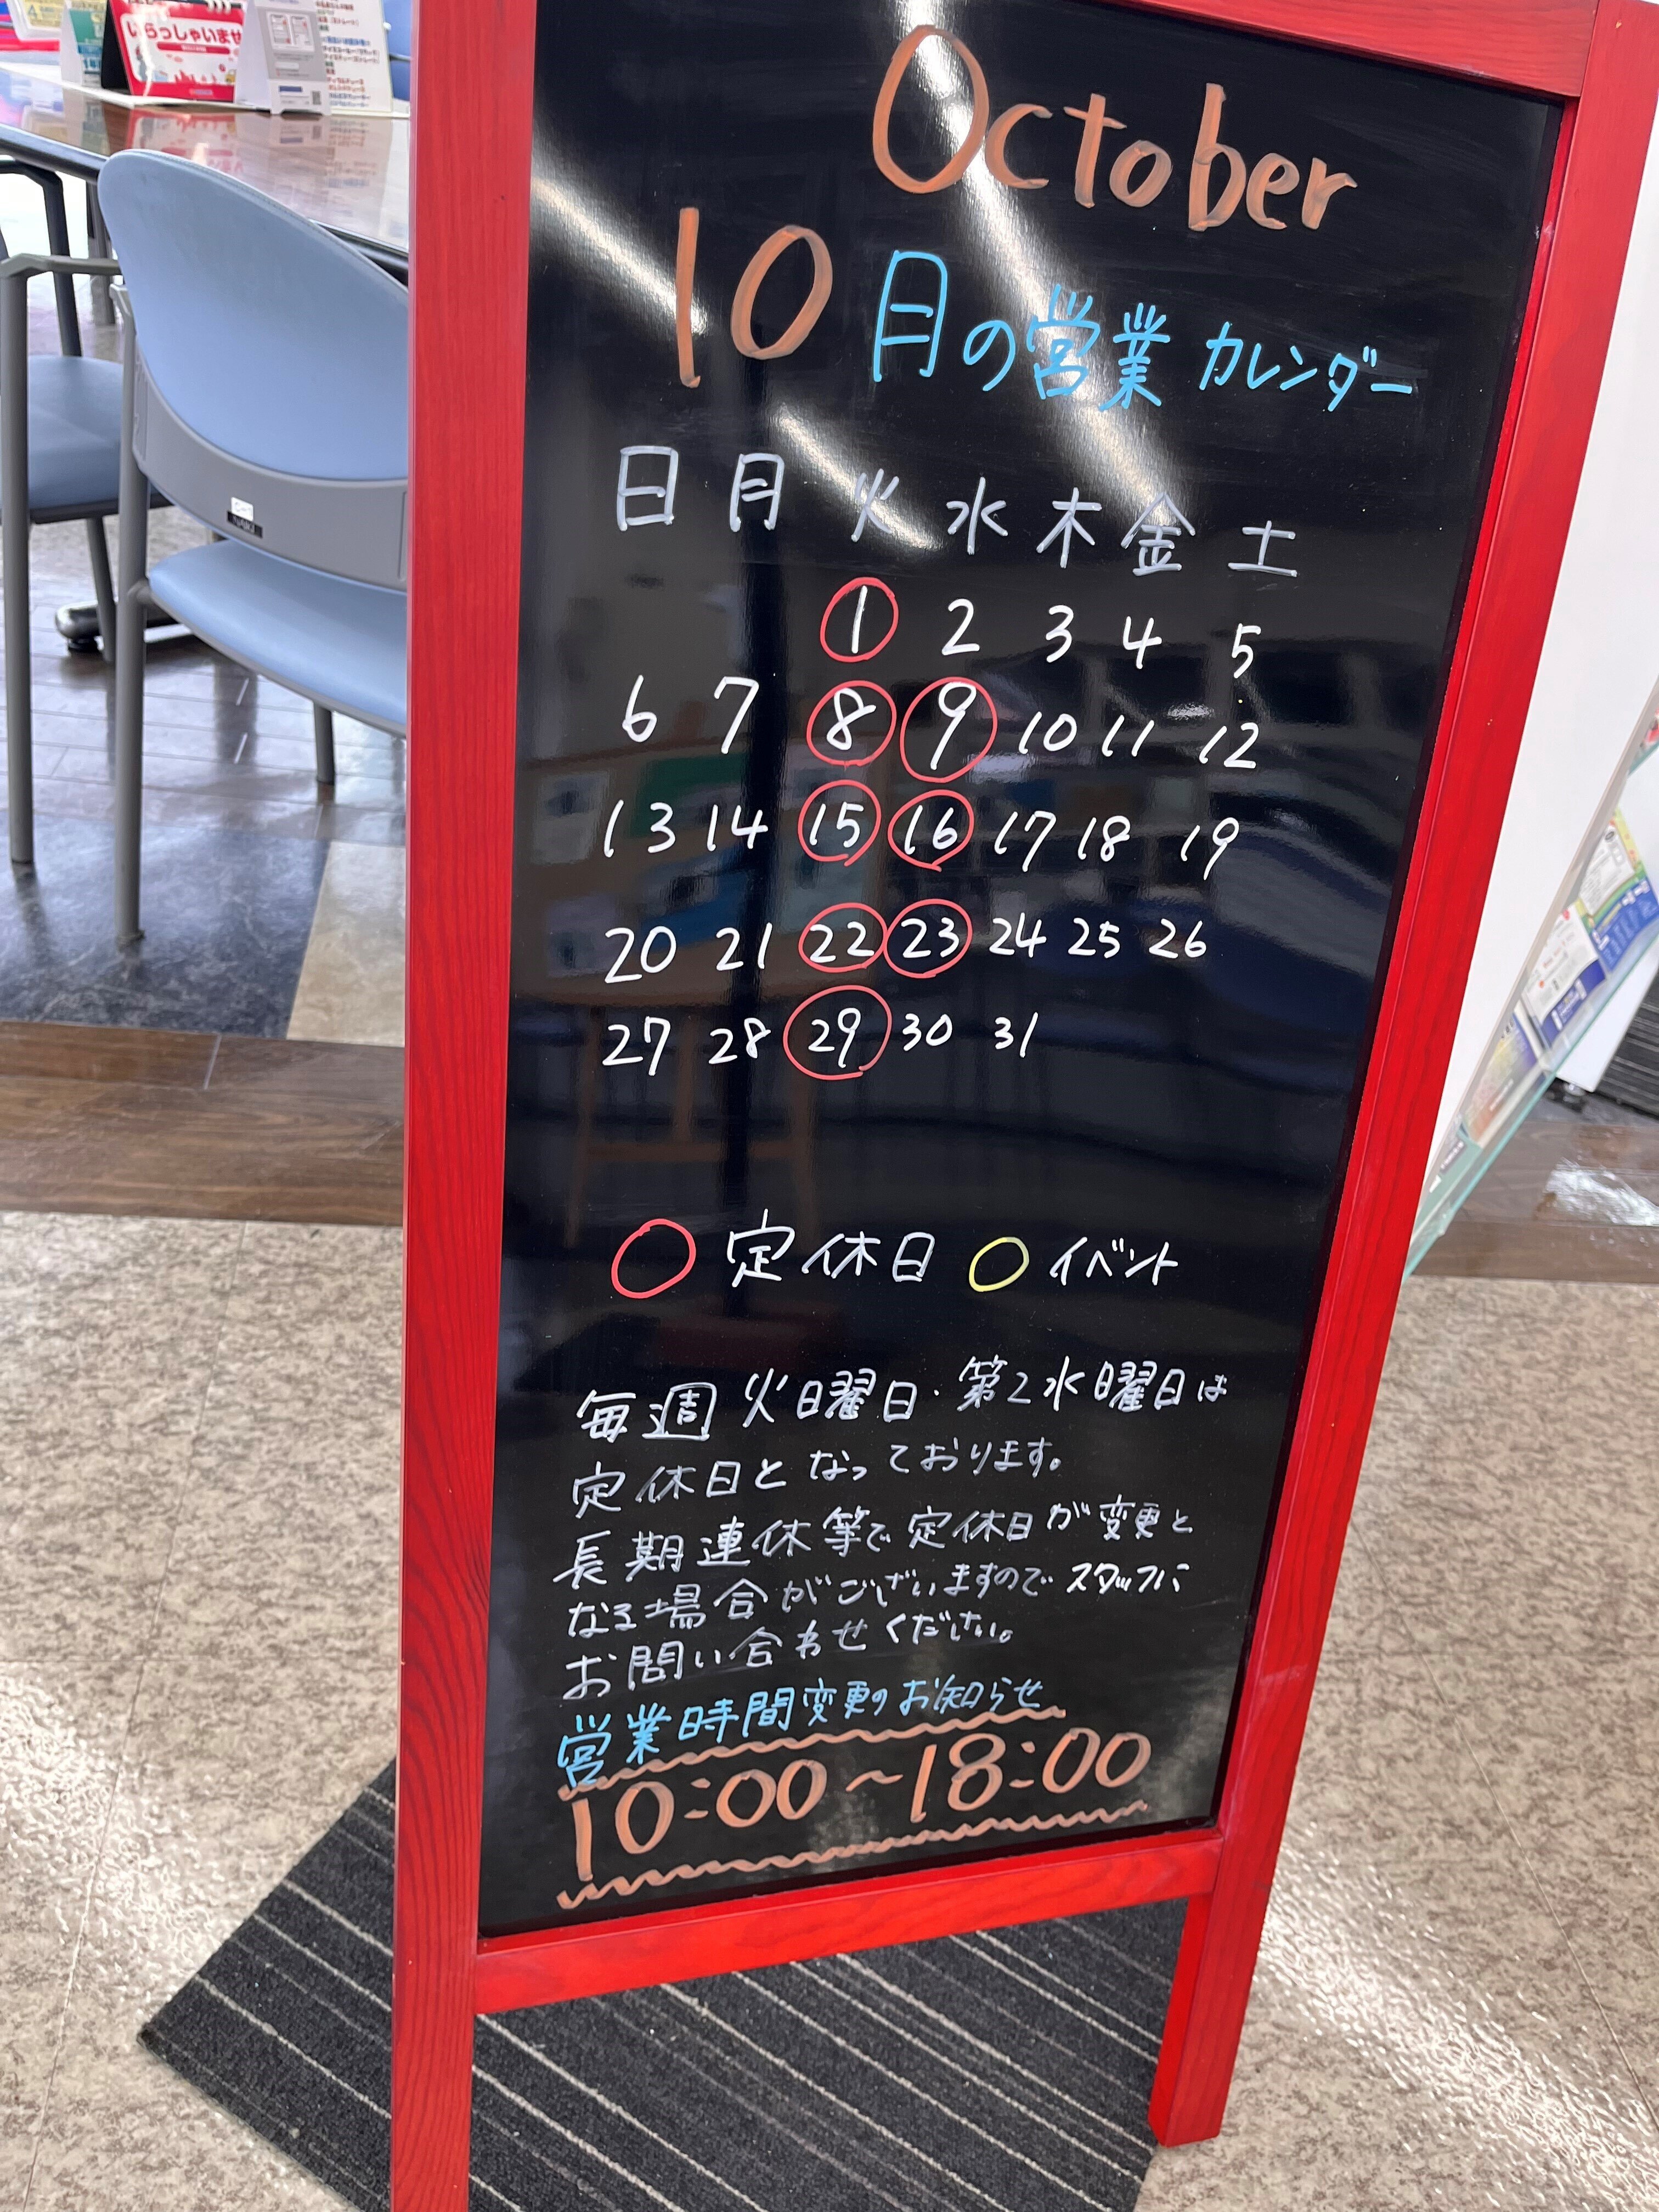 いらっしゃいませ
October
10月の営業カレンダー
日 月 火 水 木 金 土
1 2 3 4 5
6 7 8 9 10 11 12
13 14 15 16 17 18 19
20 21 22 23 24 25 26
27 28 29 30 31
定休日 イベント
毎週火曜日・第2水曜日は
定休日となっております。
長期連休等で定休日が変更と
なる場合がございますのでスタッフに
お問い合わせください。
営業時間変更のお知らせ
10:00~18:00